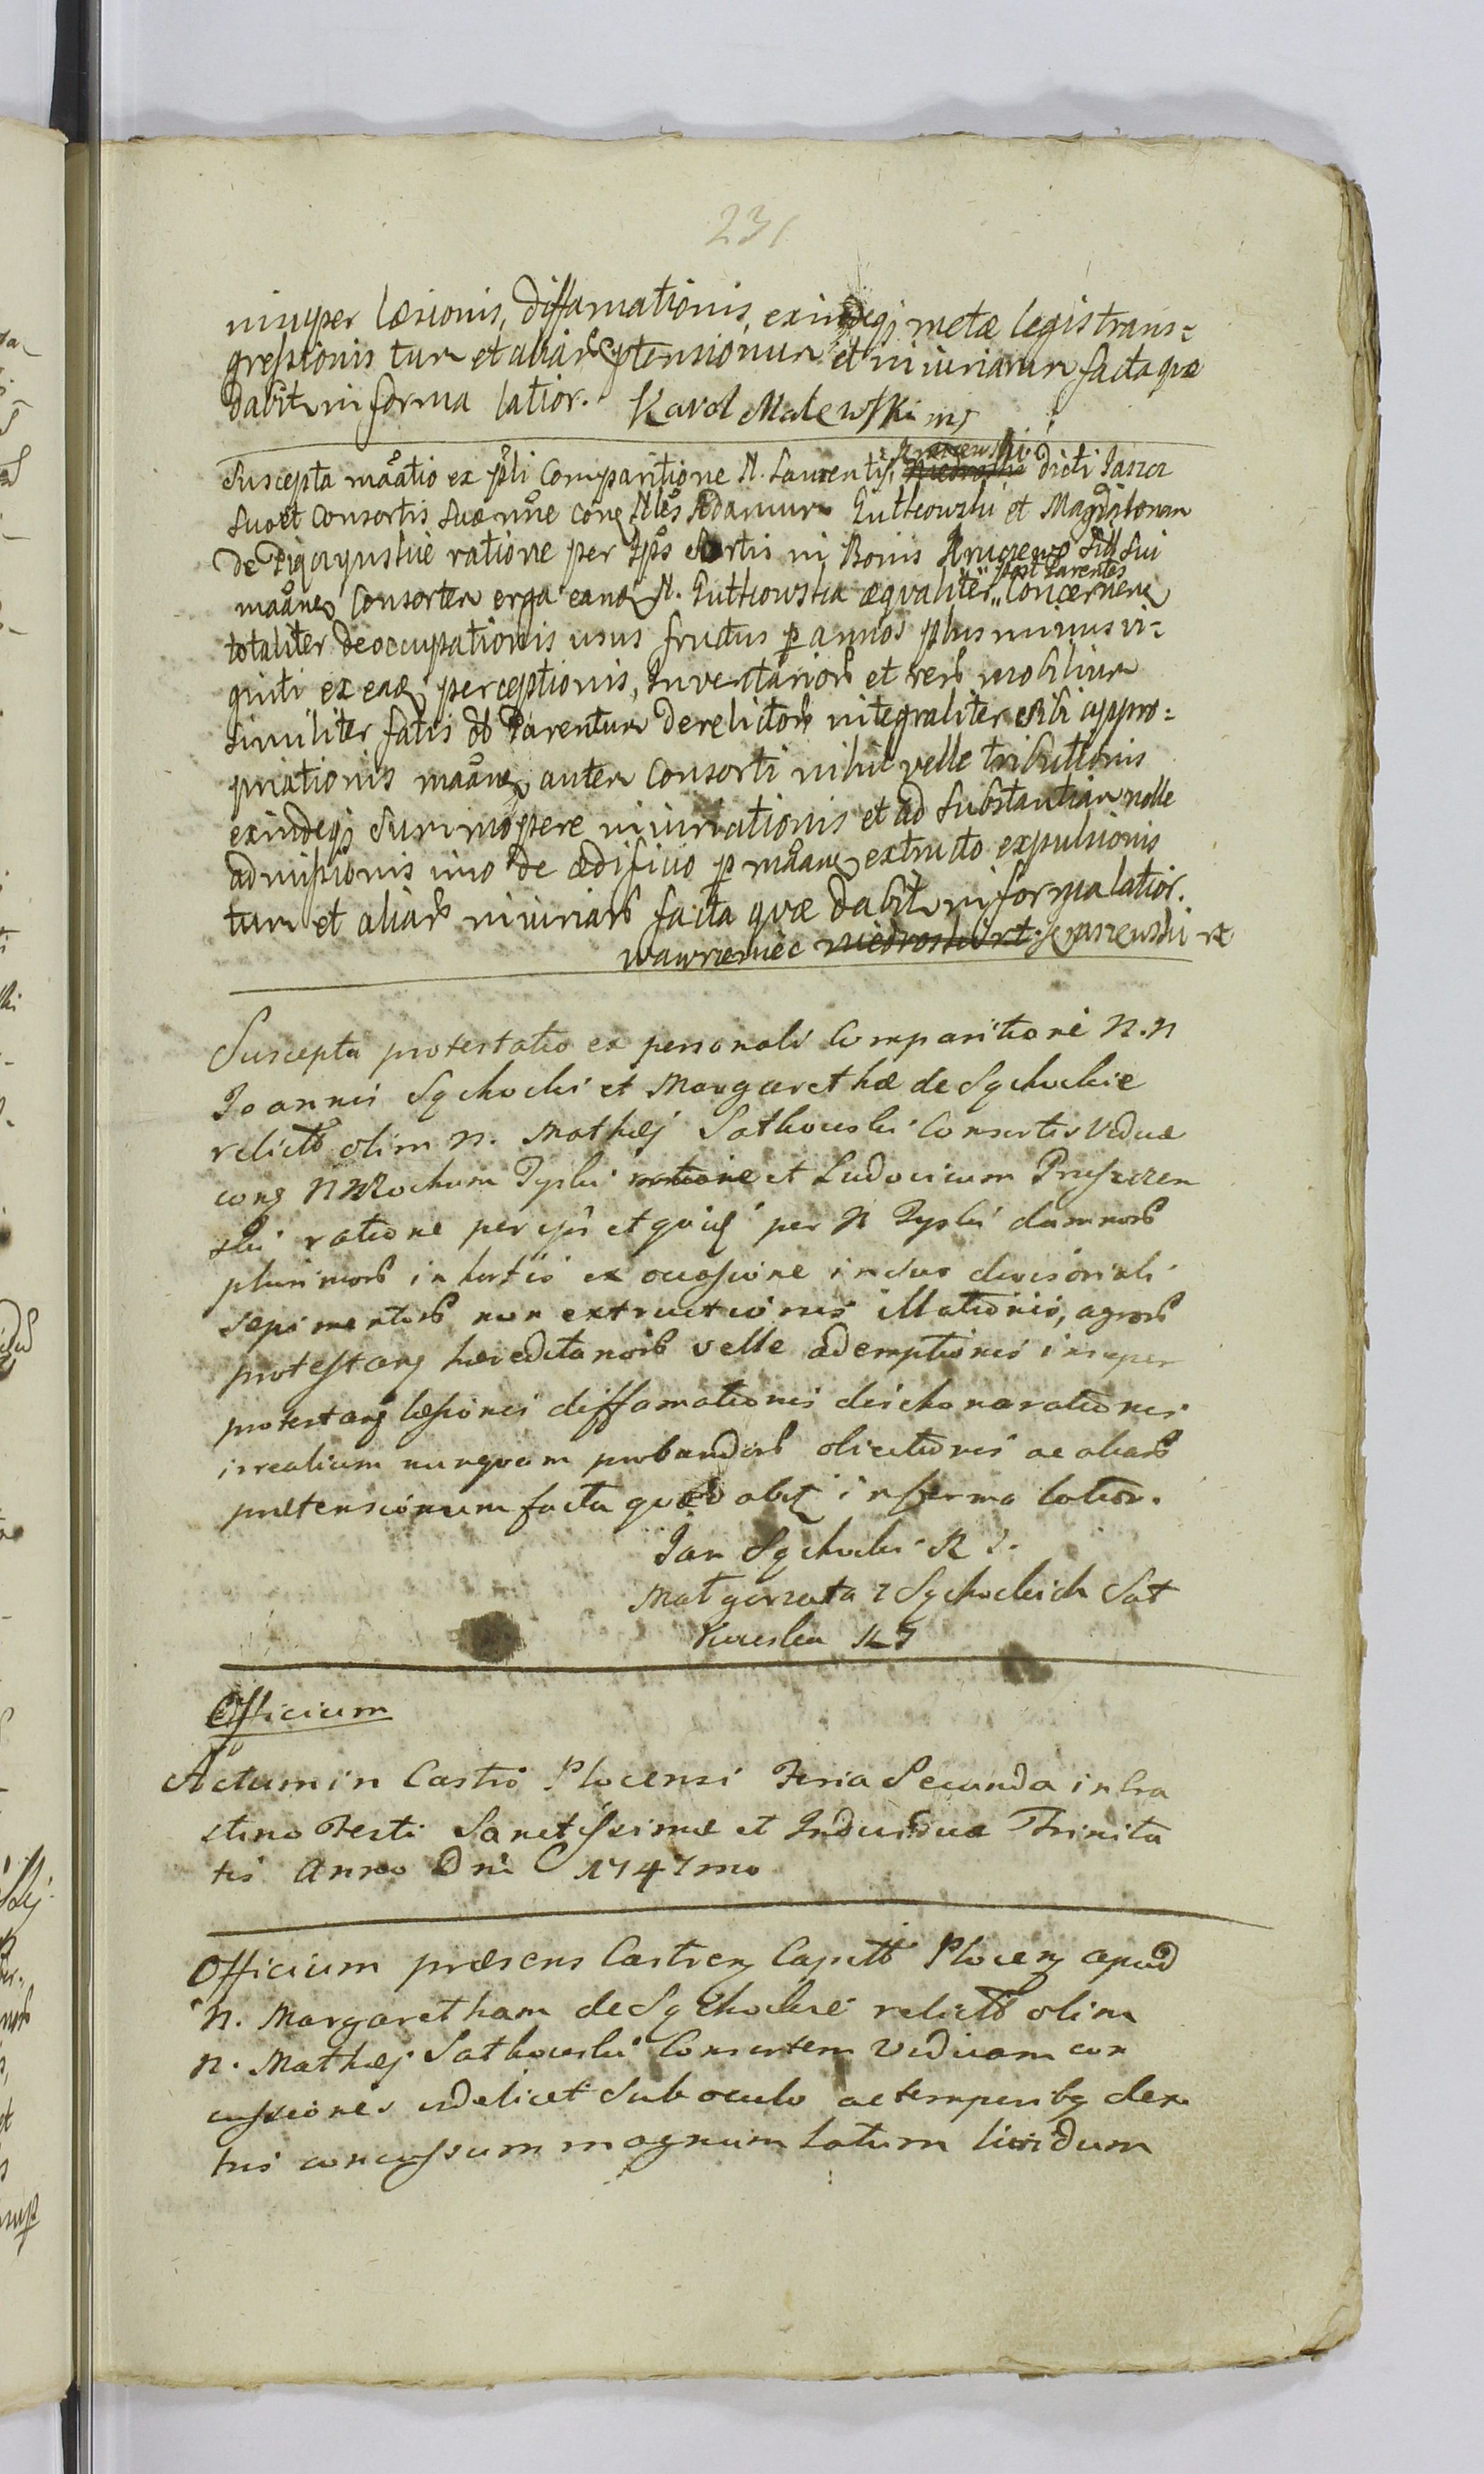 231
insuper læsionis, diffamationis, exindeqȝ metæ legis trans=
gressionis tum et aliarū ptensionum et iniuriarum facta quæ
dabit in forma latior. Karol Malewski mp
Suscepta mãatio ex pŝli Comparitione N. Laurentij dicti Jaszcz
suo et Consortis suæ nnê conȝ Nles Adamum Gutkowski et Magdalenam
de ratione per Ipôs Sortis in Bonis Kruczewo sibi sui
mãanȝ Consortem erga eanđ N. Gutkowska æqualiter „ post Parentes concernenȝ
totaliter deoccupationis usus fructus p annos plus minus vi=
ginti ex eađ perceptionis, Inventariorꝝ et rerꝝ mobilium
similiter fatis ob Parentum derelictorꝝ integraliter sibi appro=
priationis mãanȝ autem Consorti nihil velle tributionis
exindeqȝ summopere iniuriationis et ad substantiam nolle
admissionis imo de ædificio p mãanȝ extructo expulsionis
tum et aliarꝝ iniuriarꝝ facta quæ dabit in forma latior.
Wawrzeniec
Suscepta protestatio ex personali Comparitione N.N
Joannis Sąchocki et Margarethæ de Sąchockie
relictæ olim N. Mathæj Satkowski Consortis viduæ
conȝ NN Rochum Pyski ratione et Ludovicum Pruszczen
ski ratione per ipŝ et quidȝ per N Pyski damnorꝝ
plurimorꝝ in hortis ex occasione in suo divisionali
sepimentorꝝ non extructionis illationis, agrorꝝ
protestanȝ hæreditariorꝝ velle ademptionis insuper
protestanȝ læsionis diffamationis dishonorationis
irrealium nunquam probandorꝝ obiectionis ac aliarꝝ
prætensionum facta quæ dabit in forma latior.
Jan Sąchocki R S.
Małgorzata z Sąchockich Sat
kowska RS
Officium
Actum in Castro Plocensi Feria Secunda in Cra
stino Festi Sanctissimæ et Individuæ Trinita
tis Anno Dni 1747mo
Officium præsens Castrenȝ Capitł Plocenȝ apud
N. Margaretham de Sąchockie relictꝝ olim
N. Mathæj Satkowski Consortem Viduam con
cussiones videlicet sub oculo ac temporibȝ dex
tris concussum magnum latum lividum